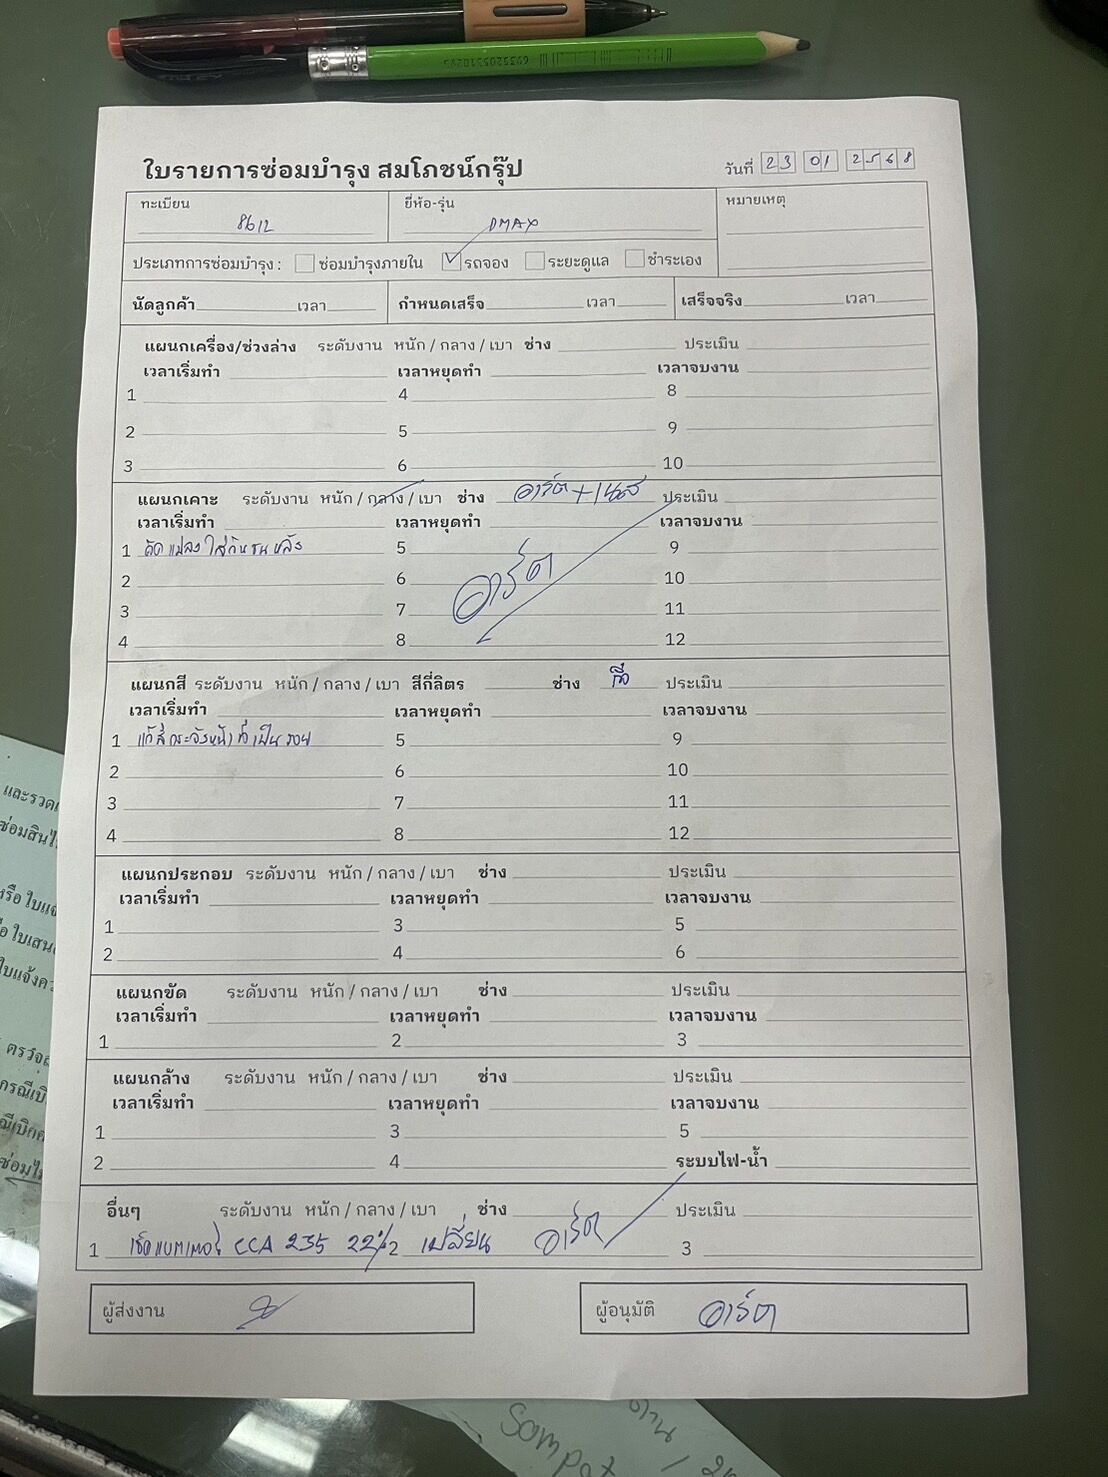 ใบรายการซ่อมบำรุง สมโภชน์กรุ๊ป
วันที่ 23 01 2568
ทะเบียน 8612
ยี่ห้อ-รุ่น DMAX
หมายเหตุ
ประเภทการซ่อมบำรุง : ซ่อมบำรุงภายใน รถจอง ระยะดูแล ชำระเอง
นัดลูกค้า เวลา กำหนดเสร็จ เวลา เสร็จจริง เวลา
แผนกเครื่อง/ช่วงล่าง ระดับงาน หนัก / กลาง / เบา ช่าง ประเมิน
เวลาเริ่มทำ เวลาหยุดทำ เวลาจบงาน
1 4 8
2 5 9
3 6 10
แผนกเคาะ ระดับงาน หนัก / กลาง / เบา ช่าง อาร์ต + ประเมิน
เวลาเริ่มทำ เวลาหยุดทำ เวลาจบงาน
1 ดัดแปลงใส่กันชนหลัง 5 9
2 6 อาร์ต 10
3 7 11
4 8 12
แผนกสี ระดับงาน หนัก / กลาง / เบา สีกี่ลิตร ช่าง ประเมิน
เวลาเริ่มทำ เวลาหยุดทำ เวลาจบงาน
1 แก้สีกระจังหน้าที่เป็นรอย 5 9
2 6 10
3 7 11
4 8 12
แผนกประกอบ ระดับงาน หนัก / กลาง / เบา ช่าง ประเมิน
เวลาเริ่มทำ เวลาหยุดทำ เวลาจบงาน
1 3 5
2 4 6
แผนกขัด ระดับงาน หนัก / กลาง / เบา ช่าง ประเมิน
เวลาเริ่มทำ เวลาหยุดทำ เวลาจบงาน
1 2 3
แผนกล้าง ระดับงาน หนัก / กลาง / เบา ช่าง ประเมิน
เวลาเริ่มทำ เวลาหยุดทำ เวลาจบงาน
1 3 5
2 4 ระบบไฟ-น้ำ
อื่นๆ ระดับงาน หนัก / กลาง / เบา ช่าง ประเมิน
1 เช็คแบตเตอรี่ CCA 235 22% 2 เปลี่ยน อาร์ต 3
ผู้ส่งงาน
ผู้อนุมัติ อาร์ต
Sompot